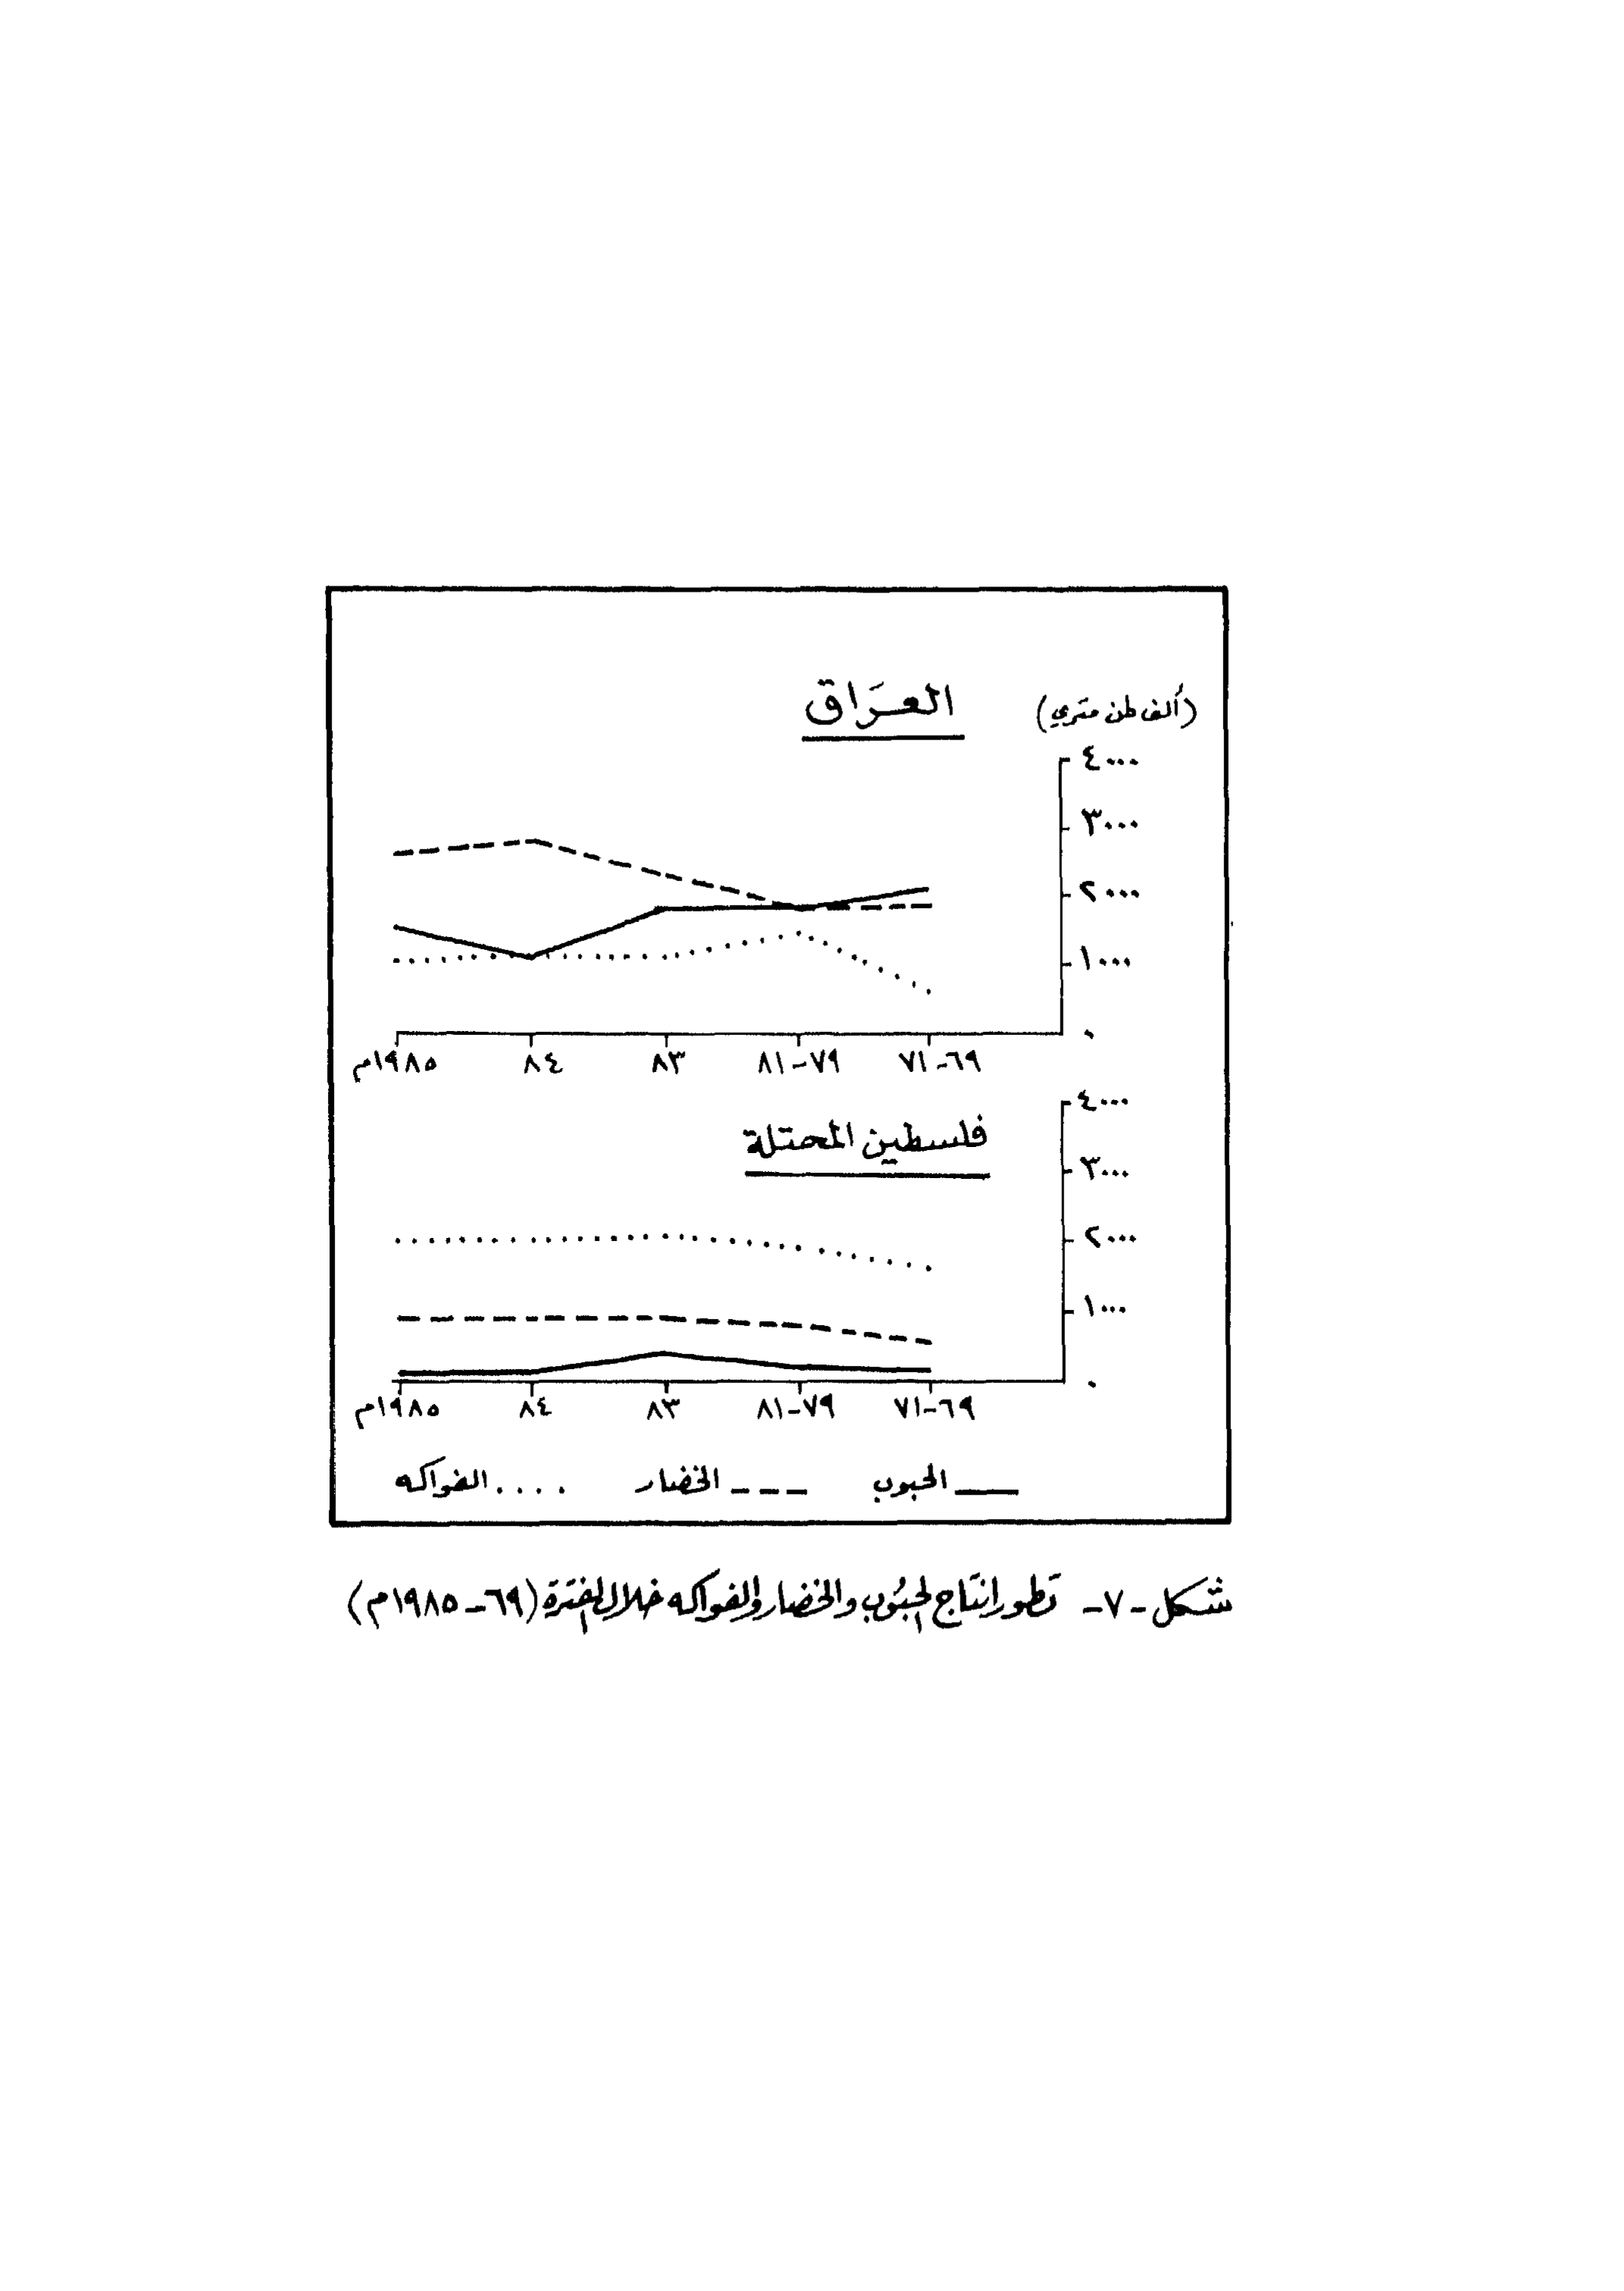 العراق
(ألف طن متري)
٤٠٠٠
٣٠٠٠
٢٠٠٠
١٠٠٠
٠
٦٩-٧١ ٧٩-٨١ ٨٣ ٨٤ ١٩٨٥م
٤٠٠٠
فلسطين المحتلة
٣٠٠٠
٢٠٠٠
١٠٠٠
٠
٦٩-٧١ ٧٩-٨١ ٨٣ ٨٤ ١٩٨٥م
الحبوب الخضار الفواكه
شكل -٧- تطور إنتاج الحبوب والخضار والفواكه خلال الفترة (٦٩-١٩٨٥م)